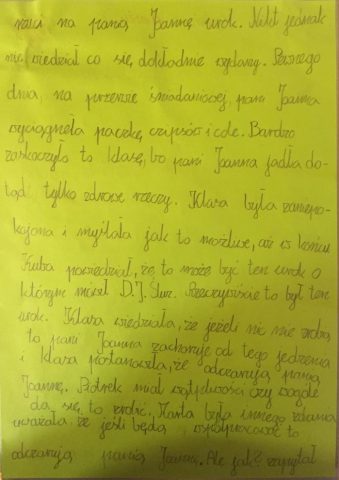 na panią Joannę urok. Nikt jednak
nie wiedział co się dokładnie wydarzy. Pewnego
dnia, na przerwie śniadaniowej, pani Joanna
wyciągnęła paczkę czipsów i cole. Bardzo
zaskoczyło to klasę, bo pani Joanna jadła do-
tąd tylko zdrowe rzeczy. Klasa była zaniepo-
kojona i myślała jak to możliwe, aż w końcu
Kuba powiedział, że to może być ten urok o
którym mówił D.J. Rzeczywiście to był ten
urok. Klasa wiedziała, że jeżeli nic nie zrobią
to pani Joanna zachoruje od tego jedzenia
i klasa postanowiła, że odczarują panią
Joannę. Piotrek miał wątpliwości czy wogóle
da się to zrobić. Karla była innego zdania
uważała, że jeśli będą współpracować to
odczarują panią Joannę. Ale jak? zapytał